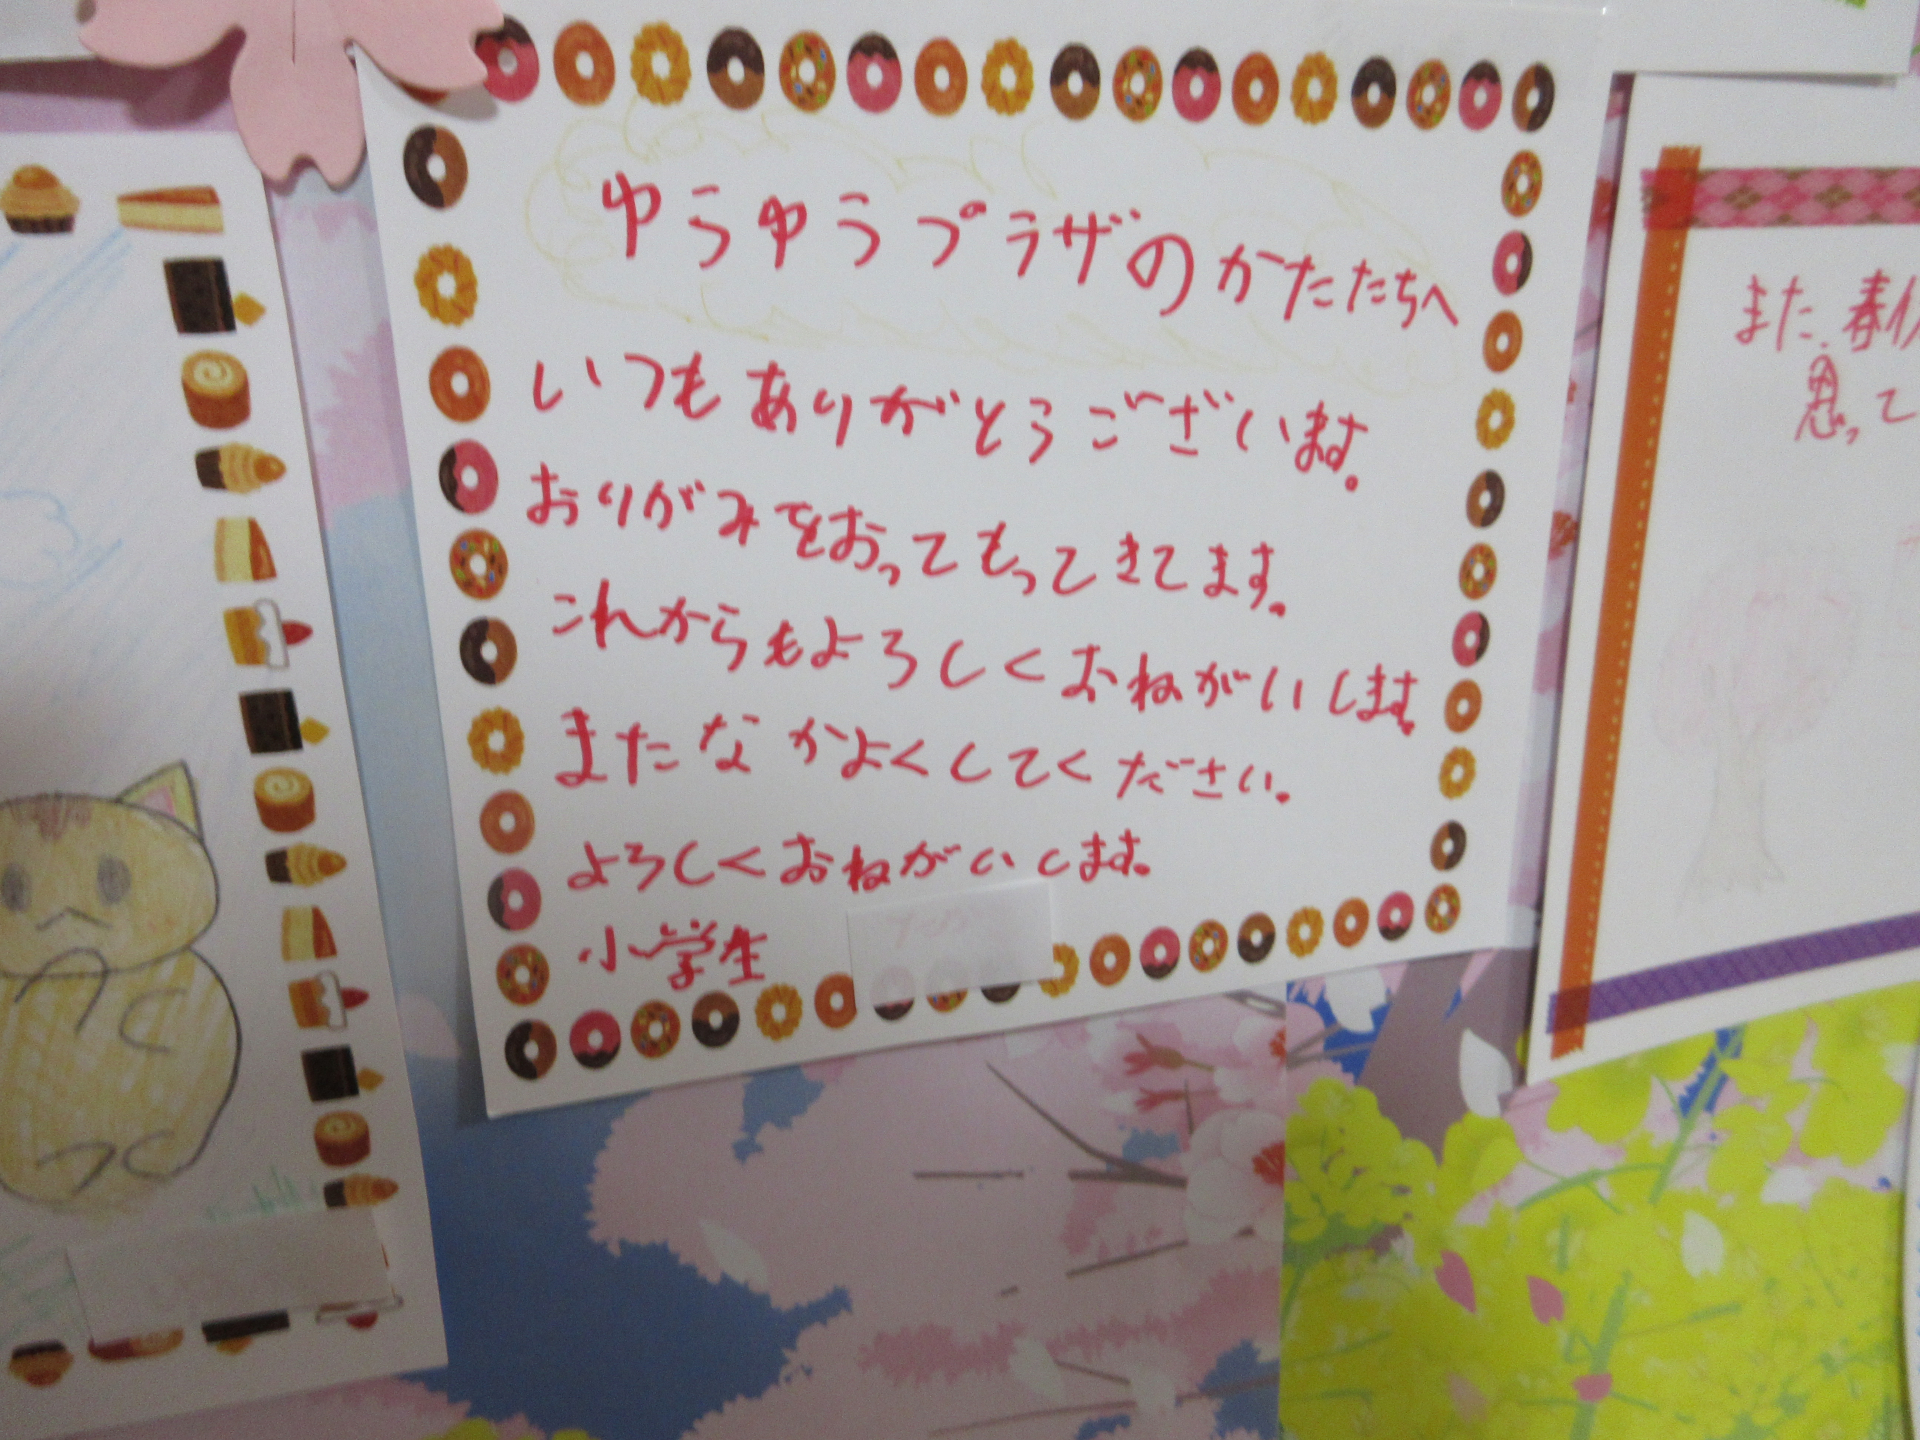 ゆうゆうプラザのかたたちへ
いつもありがとうございます。
おりがみをおってもってきてます。
これからもよろしくおねがいします。
またなかよくしてください。
よろしくおねがいします。
小学生
また、春
思って